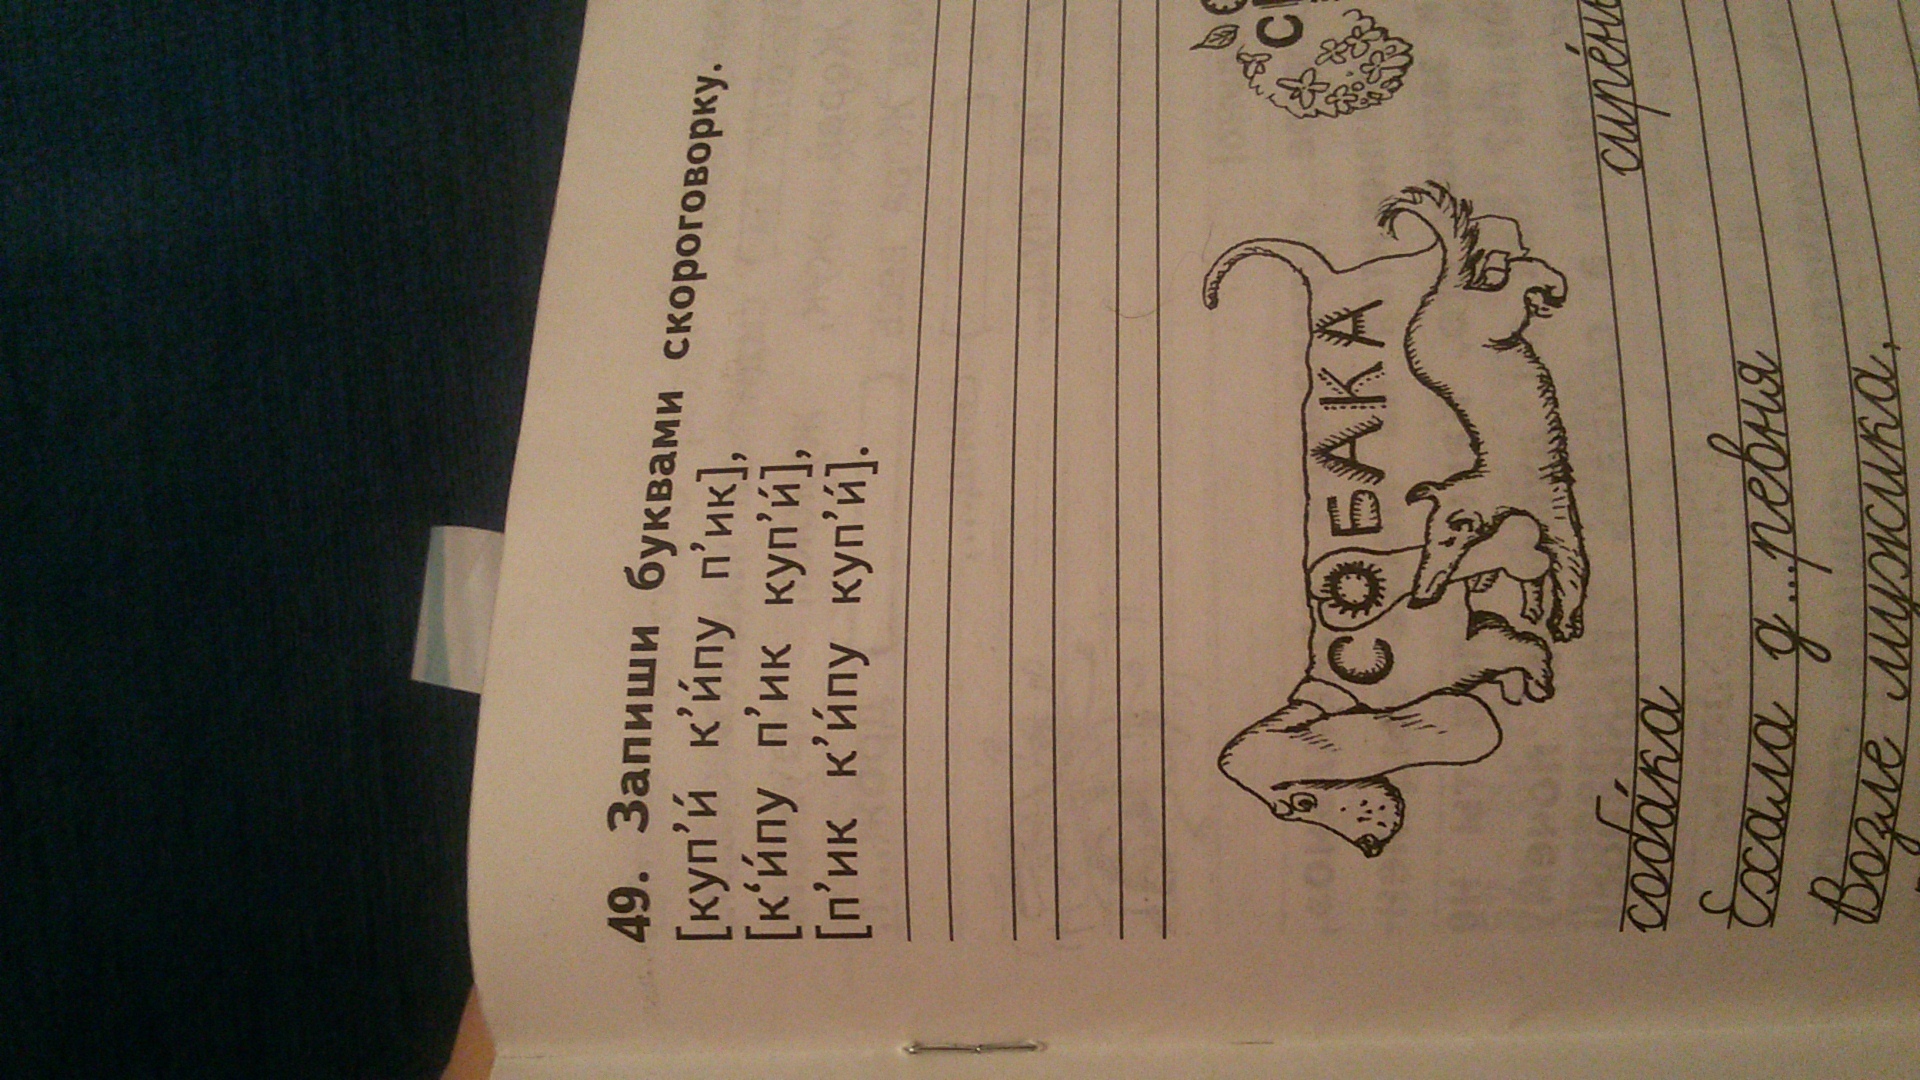 49. Запиши буквами скороговорку.
[куп’и́ к’и́пу п’ик],
[к‘и́пу п’ик куп’и́],
[п’ик к’и́пу куп’и́].
СОБАКА
собáка
сирéнь
Ехала д...ревня
Возле мужика,